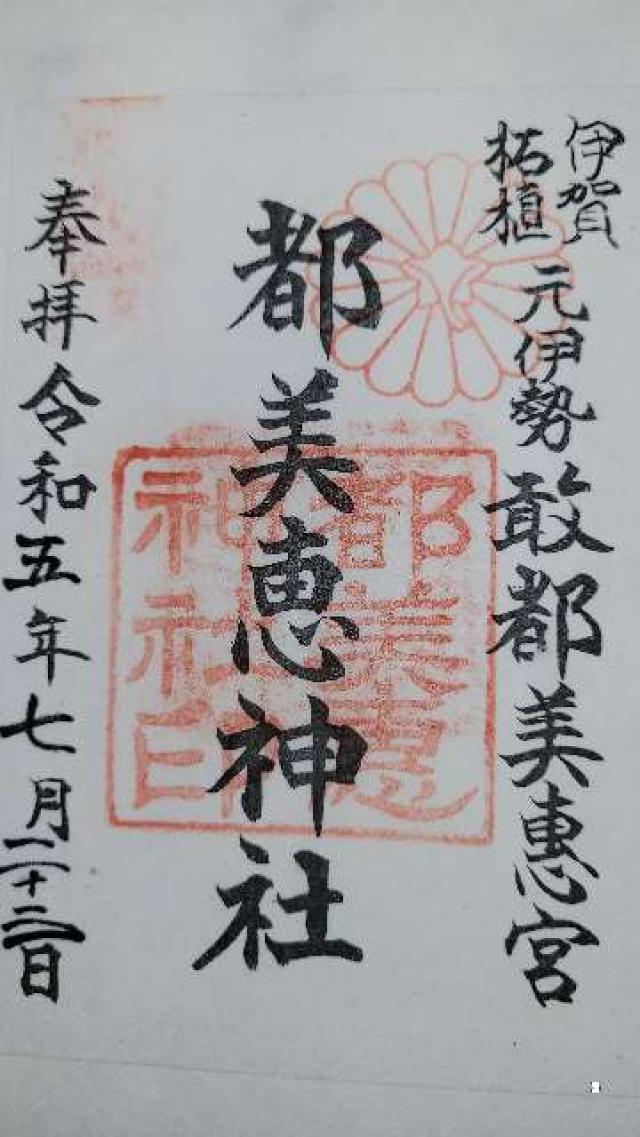 伊賀
柘植
元伊勢敢都美恵宮
都美恵神社
都美恵
神社印
奉拝令和五年七月二十三日